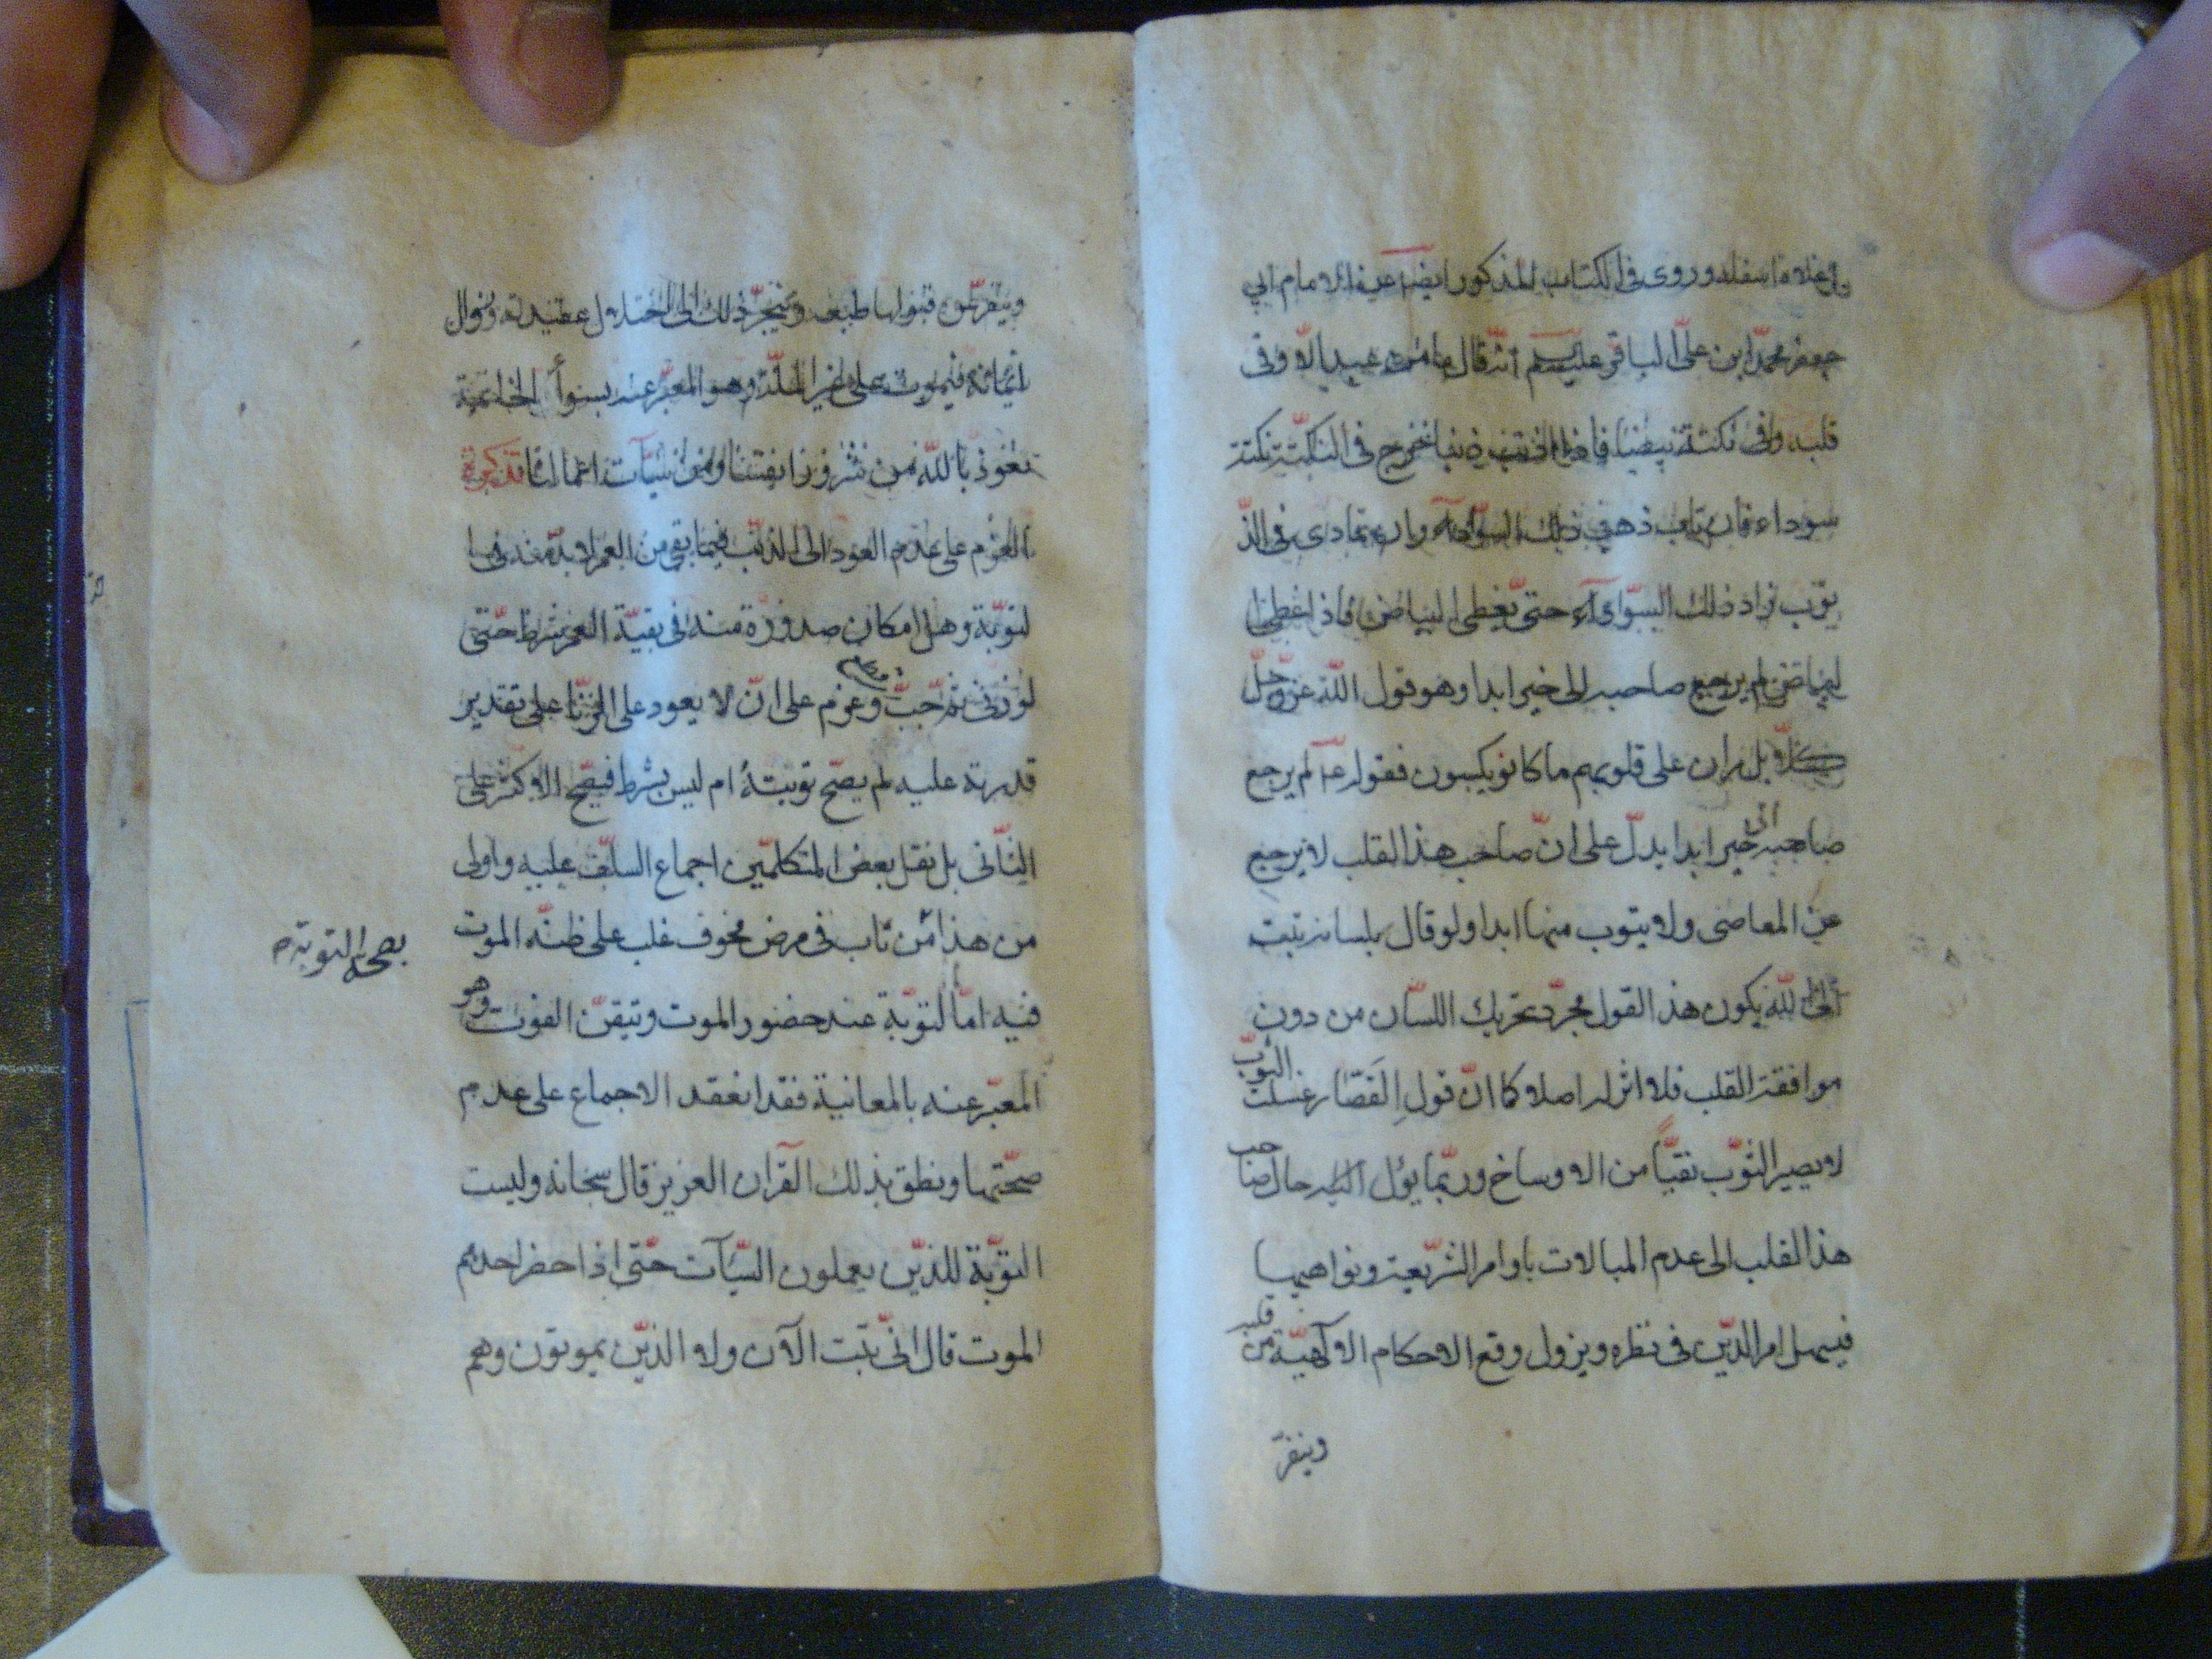 واعلاه اسفله وروى فى الكتاب المذكور ايضا عن الامام ابي
جعفر محمّد ابن علىّ الباقر عليهم انّه قال ما من عبد الّا وفى
قلبه وفى نكتة بيضا فاذا اذنب ذنبا خرج فى النّكتة نكتة
سوداء فان تاب ذهب ذلك السّواد وان تمادى فى الذّ
نوّب زاد ذلك السّوادآء حتى يّغطى البياض فاذا غطى ا
لبياض لم يرجع صاحبه الى خير ابدا وهو قول اللّه عزّ وجّلّ
كلّا بل ران على قلوبهم ما كانو يكسبون فقوله عۤ لم يرجع
صاحبه الى خير ابدا يدلّ على انّ صاحب هذا القلب لا يرجع
عن المعاصى ولا يتوب منها ابدا ولو قال بلسانه تبت
الى اللّه يكون هذا القول مجرّد تحريك اللسّان من دون
موافقة القلب فلا اثر له اصلا كما انّ قول القصّار غسلت الثوّب
لا يصير الثوّب نقيّاً من الاوساخ وربّما يؤل اليه حال صاحب
هذا القلب الى عدم المبالات باوامر الشرّيعة ونواهيها
فيسهل امر الدّين فى نظره ويزول وقع الاحكام الالٓهيّة من قلبه
وينفرّ
وينفرّ عن قبولها طبعه وينجرّ ذلك الى اختلال عقيدته وزوال
ايمانه فيموت على غير الملّة وهو المعبّر عنه بسوأ الخاتمة
نعوذ باللّه من شرور انفسنا ومن سيّآت اعمالنا تذكرة
العزم على عدم العود الى الذنب فيما بقى من العمر لا بدّ منه فى ا
لتوّبة وهل امكان صدوره منه فى بقيّة العمر شرط حّتى
لو زنى ثمّ جبّ وعزم على انّ لا يعود على الزّنا على تقدير
قدرته عليه لم يصحّ توبته ام ليس بشرط فيصّح الاكثر على
الثّانى بل نقل بعض المتكلمّين اجماع السلّف عليه واولى
من هذا مّن تاب فى مرض مخوف غلب على ظنّه الموت
بصحة التوبة
فيه امّا التوّبة عند حضور الموت وتيقنّ الفوت وهو
المعبّر عنه بالمعانية فقد انعقد الاجماع على عدم
صحّتها ونطق بذلك القرآن العزيز قال سبحانه وليست
التوّبة للذيّن يعملون السّيّآت حّتى اذا حضر احدهم
الموت قال انّى تبت الآن ولا الذيّن يموتون وهم